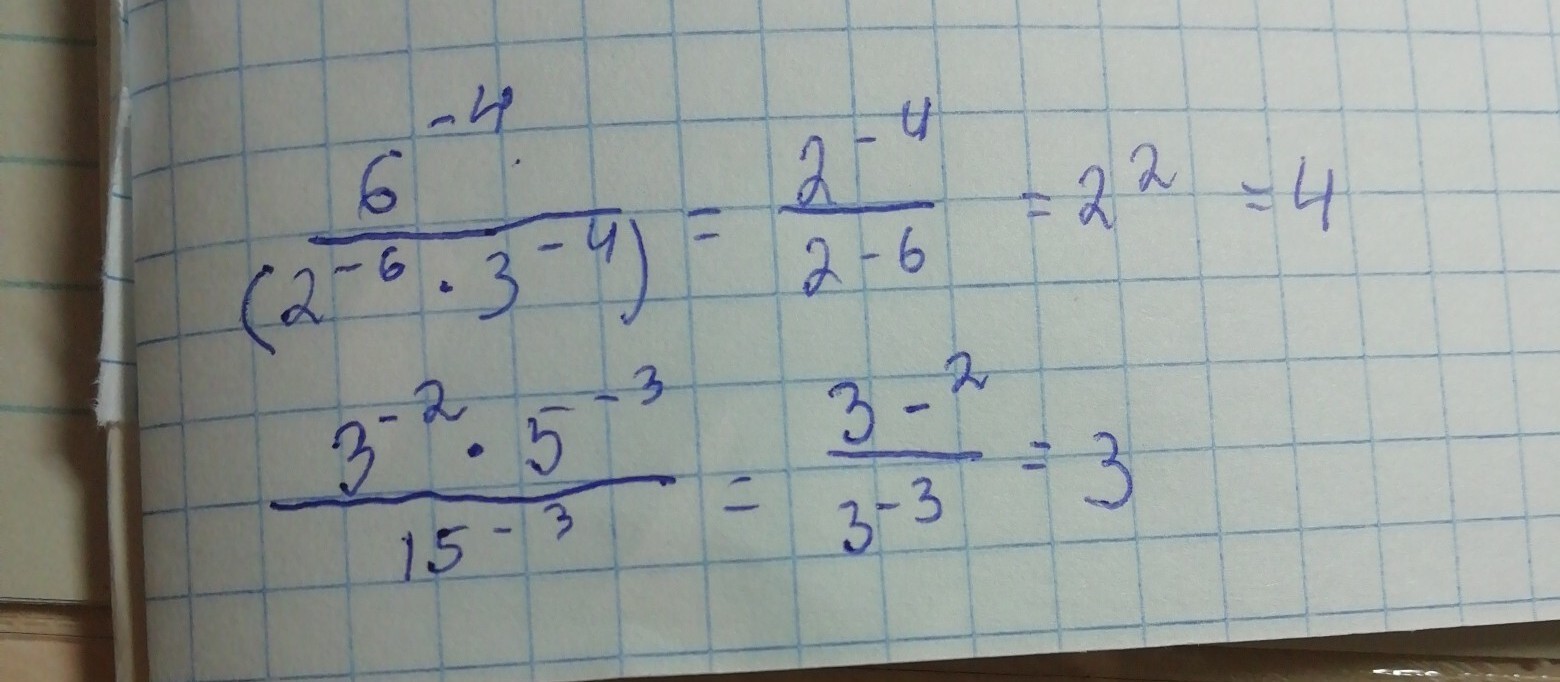 6⁻⁴ / (2⁻⁶ · 3⁻⁴) = 2⁻⁴ / 2⁻⁶ = 2² = 4
3⁻² · 5⁻³ / 15⁻³ = 3⁻² / 3⁻³ = 3